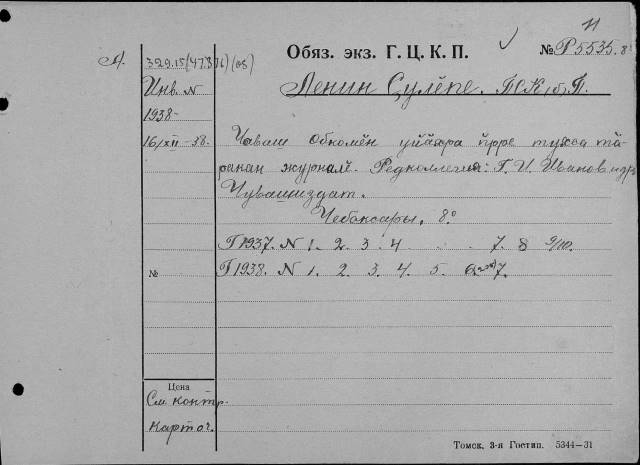 11
Обяз. экз. Г. Ц. К. П.
№ P5535.8
А.
329.15(47.83)(05)
Инв. N
1938
16/XII-38.
Ленин Сулĕпе. П.К.(б)П.
Чăваш Обкомĕн уйăхра пĕрре тухса тă-
ракан журналĕ. Редколлегия: Г. И. Иванов и др.
Чувашиздат.
Чебоксары. 8°
Г1937. N 1. 2. 3. 4 . . 7. 8 9/10.
Г1938. N 1. 2. 3. 4. 5. 7.
№
Цена
См. контр.
карточ.
Томск, 3-я Гостип. 5344—31